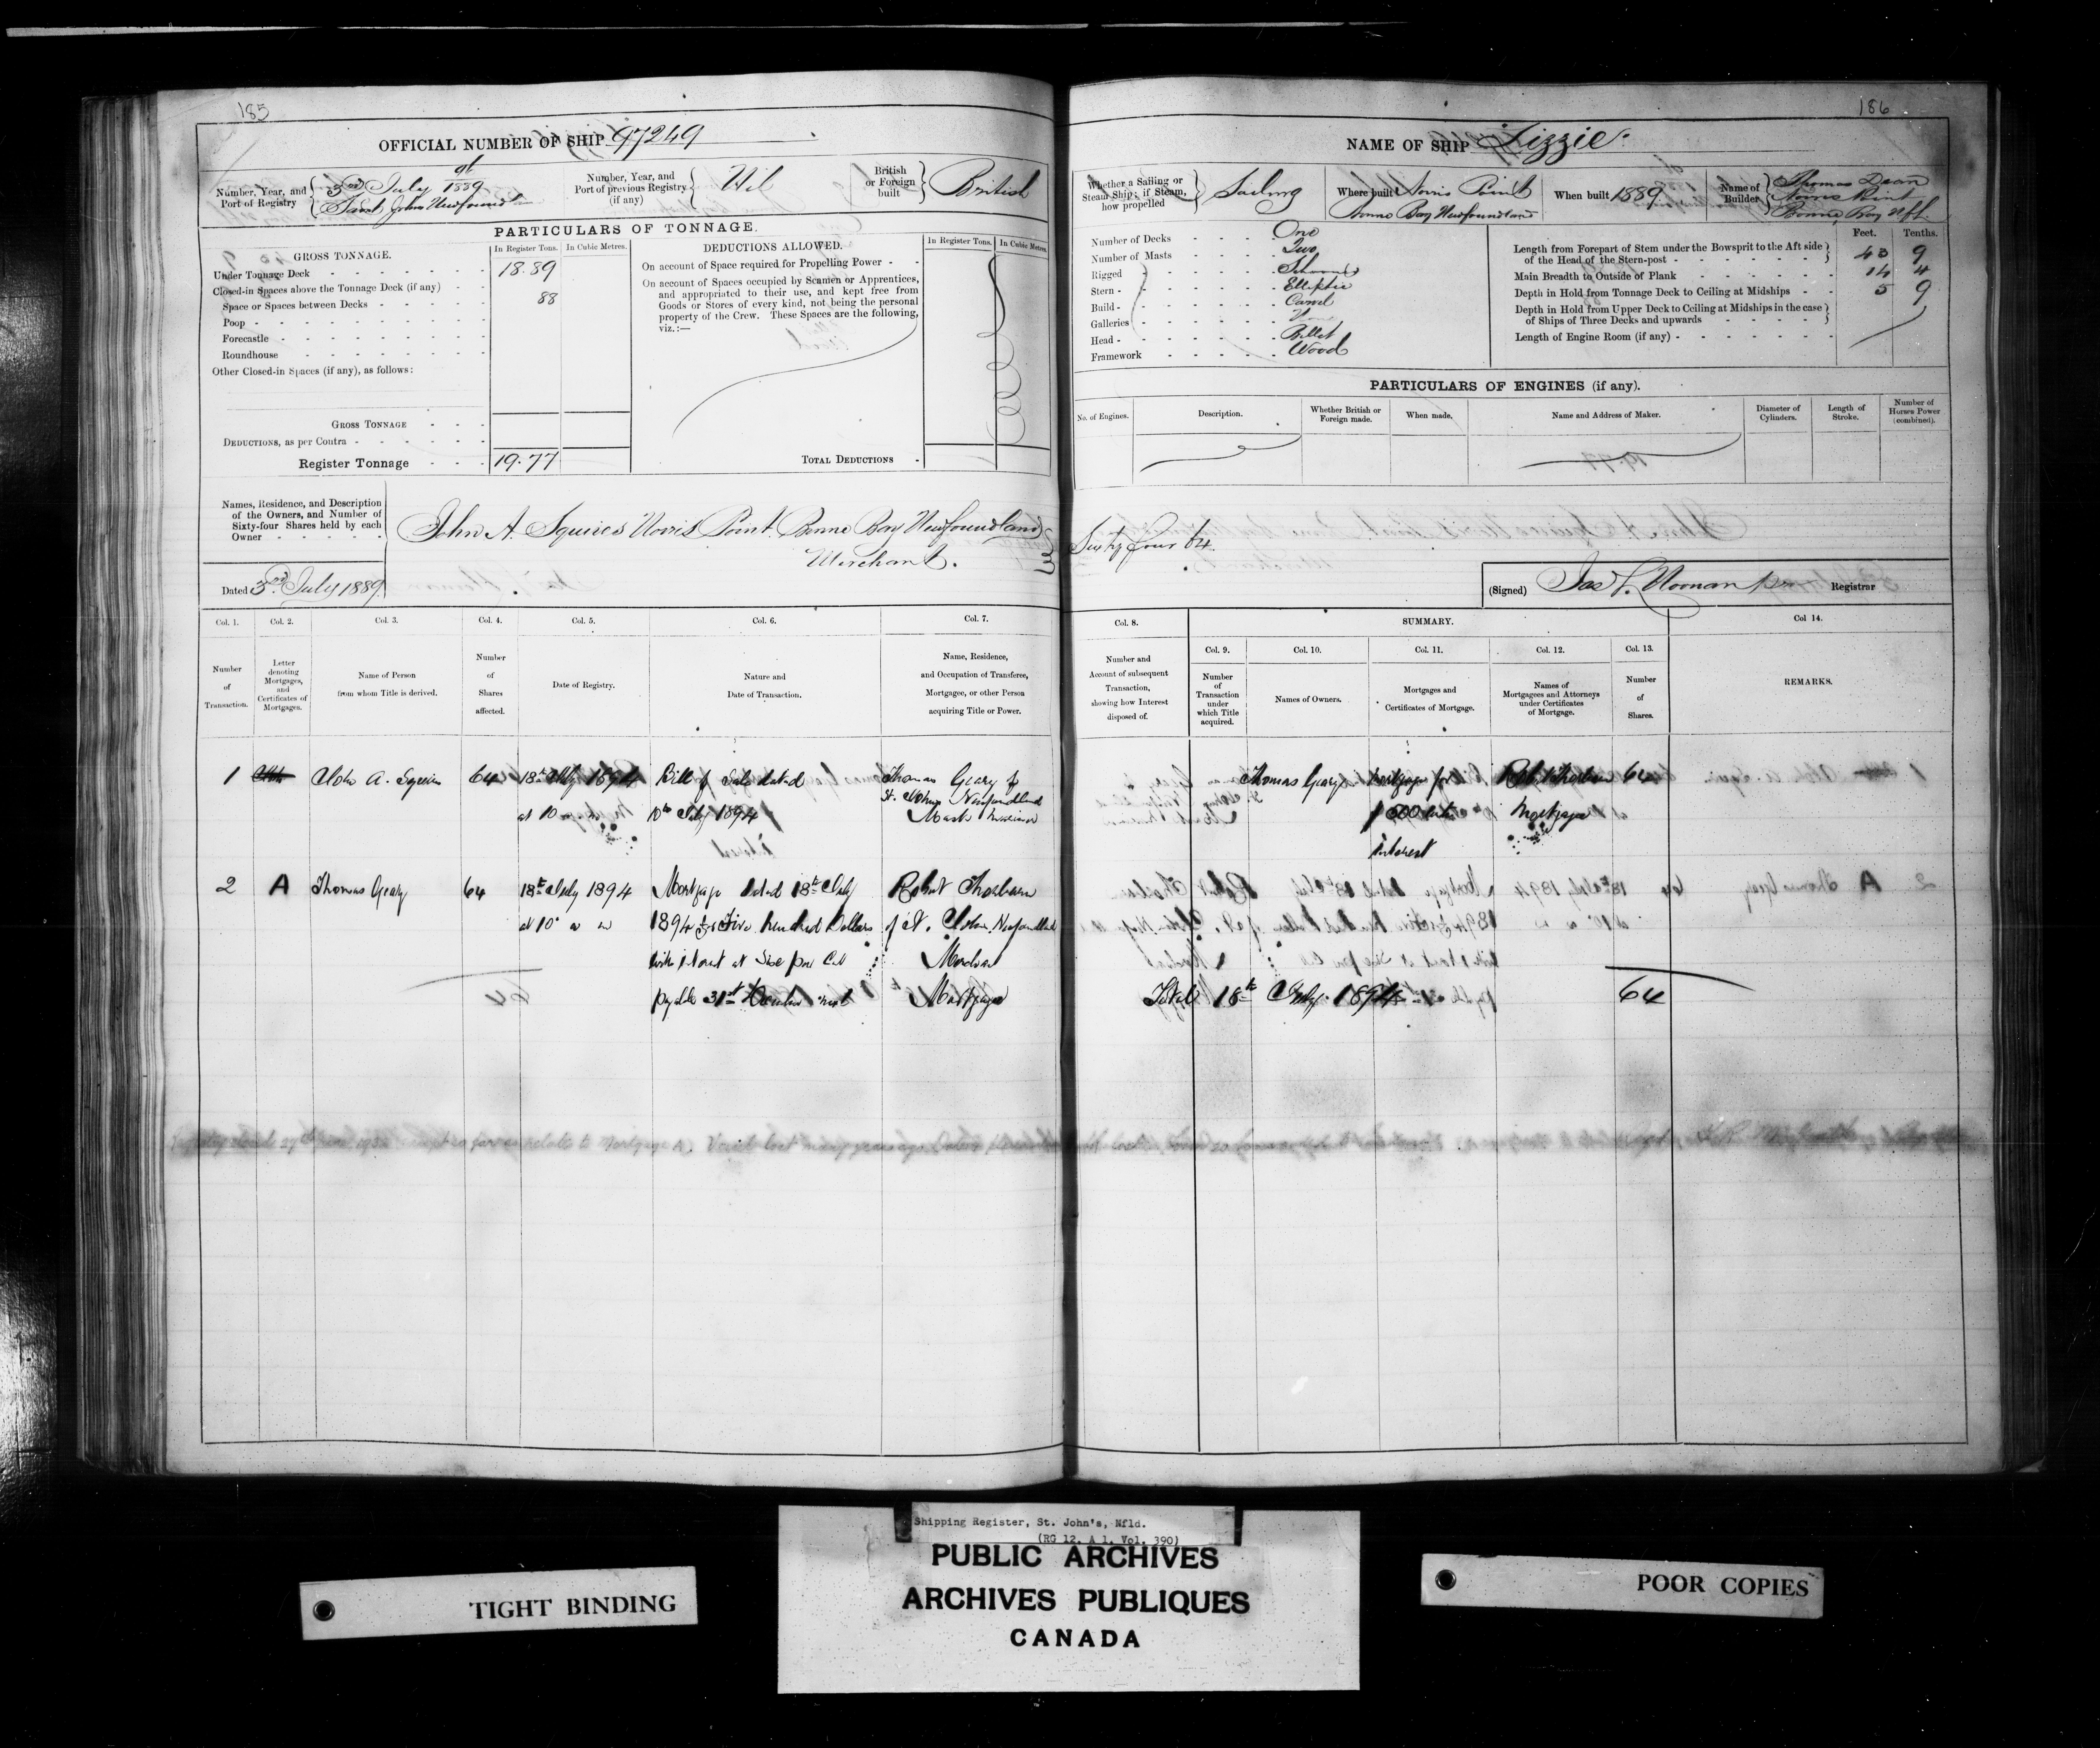 185
OFFICIAL NUMBER OF SHIP 97249
Number, Year, and Port of Registry
3rd July 1889 at
Saint John's Newfoundland
Number, Year, and Port of previous Registry (if any)
Nil
British or Foreign built
British
PARTICULARS OF TONNAGE.
GROSS TONNAGE.
In Register Tons.
In Cubic Metres.
Under Tonnage Deck 18.89
Closed-in Spaces above the Tonnage Deck (if any) 88
Space or Spaces between Decks
Poop
Forecastle
Roundhouse
Other Closed-in Spaces (if any), as follows:
GROSS TONNAGE
DEDUCTIONS, as per Contra
Register Tonnage 19.77
DEDUCTIONS ALLOWED.
In Register Tons.
In Cubic Metres
On account of Space required for Propelling Power
On account of Spaces occupied by Seamen or Apprentices,
and appropriated to their use, and kept free from
Goods or Stores of every kind, not being the personal
property of the Crew. These Spaces are the following,
viz.:—
TOTAL DEDUCTIONS
Names, Residence, and Description
of the Owners, and Number of
Sixty-four Shares held by each
Owner
John A. Squires Norris Point Bonne Bay Newfoundland
Merchant.
Dated 3rd July 1889.
Col. 1.
Number of Transaction.
Col. 2.
Letter denoting Mortgages, and Certificates of Mortgages.
Col. 3.
Name of Person from whom Title is derived.
Col. 4.
Number of Shares affected.
Col. 5.
Date of Registry.
Col. 6.
Nature and Date of Transaction.
Col. 7.
Name, Residence, and Occupation of Transferee, Mortgagee, or other Person acquiring Title or Power.
1 John A. Squires 64 18th July 1894 Bill of Sale dated Thomas Geary of
at 10 10th July 1894 St. John's Newfoundland
Master Mariner
2 A Thomas Geary 64 18th July 1894 Mortgage dated 18th July Robert Thorburn
at 10 1894 for Five hundred Dollars of St. John's Newfoundland
with interest at Six per Cent Merchant
payable 31st December next Mortgagee
186
NAME OF SHIP Lizzie
Whether a Sailing or Steam Ship; if Steam, how propelled
Sailing
Where built Norris Point
Bonne Bay Newfoundland
When built 1889.
Name of Builder
Thomas Dean
Norris Point
Bonne Bay Nfld.
Number of Decks One
Number of Masts Two
Rigged Schooner
Stern Elliptic
Build Carvel
Galleries None
Head Billet
Framework Wood
Feet. Tenths.
Length from Forepart of Stem under the Bowsprit to the Aft side
of the Head of the Stern-post 43 9
Main Breadth to Outside of Plank 14 4
Depth in Hold from Tonnage Deck to Ceiling at Midships 5 9
Depth in Hold from Upper Deck to Ceiling at Midships in the case
of Ships of Three Decks and upwards
Length of Engine Room (if any)
PARTICULARS OF ENGINES (if any).
No. of Engines.
Description.
Whether British or Foreign made.
When made.
Name and Address of Maker.
Diameter of Cylinders.
Length of Stroke.
Number of Horses Power (combined).
Sixty four 64.
(Signed) Jas L. Noonan Registrar
Col. 8.
Number and Account of subsequent Transaction, showing how Interest disposed of.
SUMMARY.
Col. 9.
Number of Transaction under which Title acquired.
Col. 10.
Names of Owners.
Col. 11.
Mortgages and Certificates of Mortgage.
Col. 12.
Names of Mortgagees and Attorneys under Certificates of Mortgage.
Col. 13.
Number of Shares.
Col 14.
REMARKS.
Thomas Geary Mortgage for Robt Thorburn 64
$500 with Mortgagee
Interest
Total 18th July 1894 64
Shipping Register, St. John's, Nfld.
(RG 12, A 1, Vol. 390)
PUBLIC ARCHIVES
ARCHIVES PUBLIQUES
CANADA
TIGHT BINDING
POOR COPIES